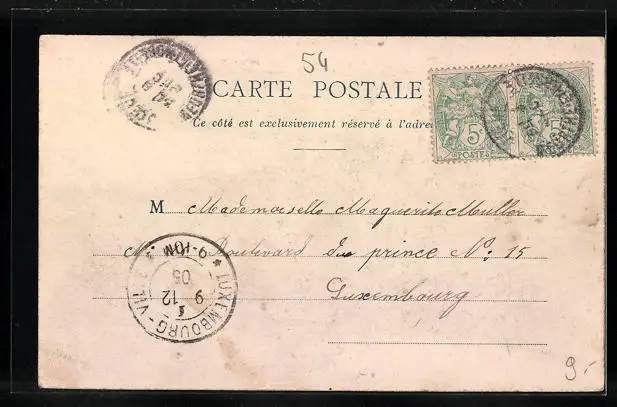 54
CARTE POSTALE
Ce côté est exclusivement réservé à l'adre
5c 5c
POSTES
M Mademoiselle Maguerite Muller
Boulevard du prince No: 15
Luxembourg
LUXEMBOURG-VILLE
9-10M
9 12
05
9.-